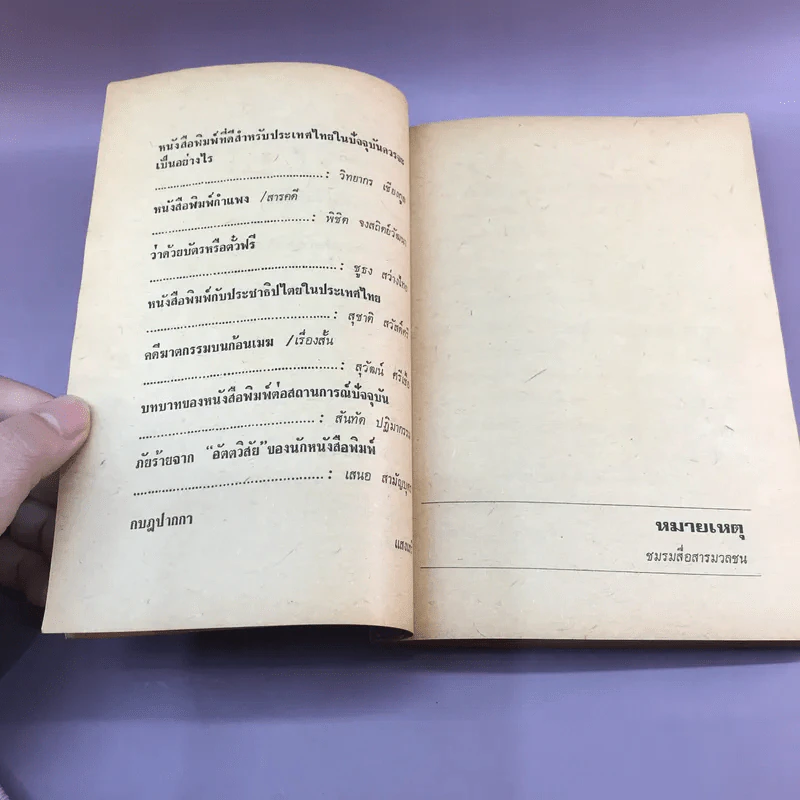 หนังสือพิมพ์ที่ดีสำหรับประเทศไทยในปัจจุบันควรจะ
เป็นอย่างไร
: วิทยากร เชียงกูล
หนังสือพิมพ์กำแพง /สารคดี
: พิชิต จงสถิตย์วัฒนา
ว่าด้วยบัตรหรือตั๋วฟรี
: ชูธง สว่างไทย
หนังสือพิมพ์กับประชาธิปไตยในประเทศไทย
: สุชาติ สวัสดิ์ศรี
คดีฆาตกรรมบนก้อนเมฆ /เรื่องสั้น
: สุวัฒน์ ศรีเชื้อ
บทบาทของหนังสือพิมพ์ต่อสถานการณ์ปัจจุบัน
: สันทัด ปฏิมากรรม
ภัยร้ายจาก “อัตตวิสัย” ของนักหนังสือพิมพ์
: เสนอ
กบฎปากกา
หมายเหตุ
ชมรมสื่อสารมวลชน